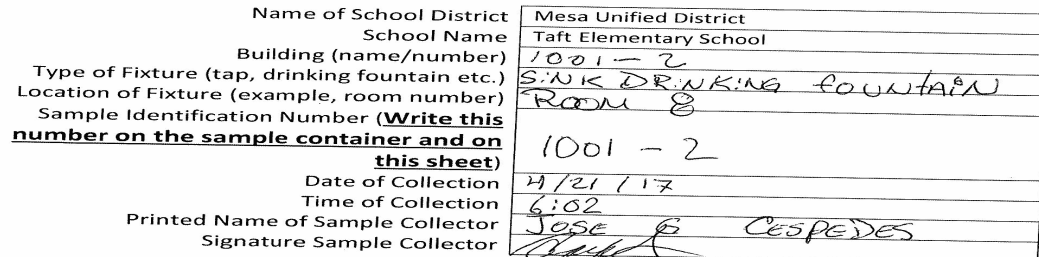 Name of School District Mesa Unified District
School Name Taft Elementary School
Building (name/number) 1001 - 2
Type of Fixture (tap, drinking fountain etc.) SiNK DRiNKiNG fOUNtAiN
Location of Fixture (example, room number) ROOM 8
Sample Identification Number (Write this
number on the sample container and on
this sheet) 1001 - 2
Date of Collection 4/21/17
Time of Collection 6:02
Printed Name of Sample Collector JOSE G CESPEDES
Signature Sample Collector